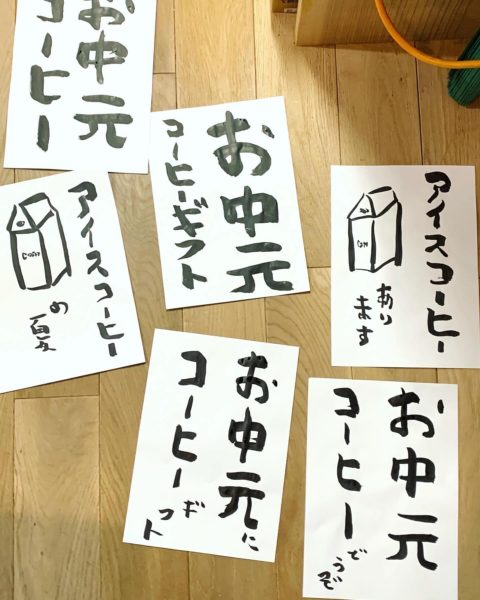 お中元
コーヒー
お中元
コーヒーギフト
アイスコーヒー
の夏
アイスコーヒー
あります
お中元に
コーヒーギフト
お中元
コーヒーどうぞ